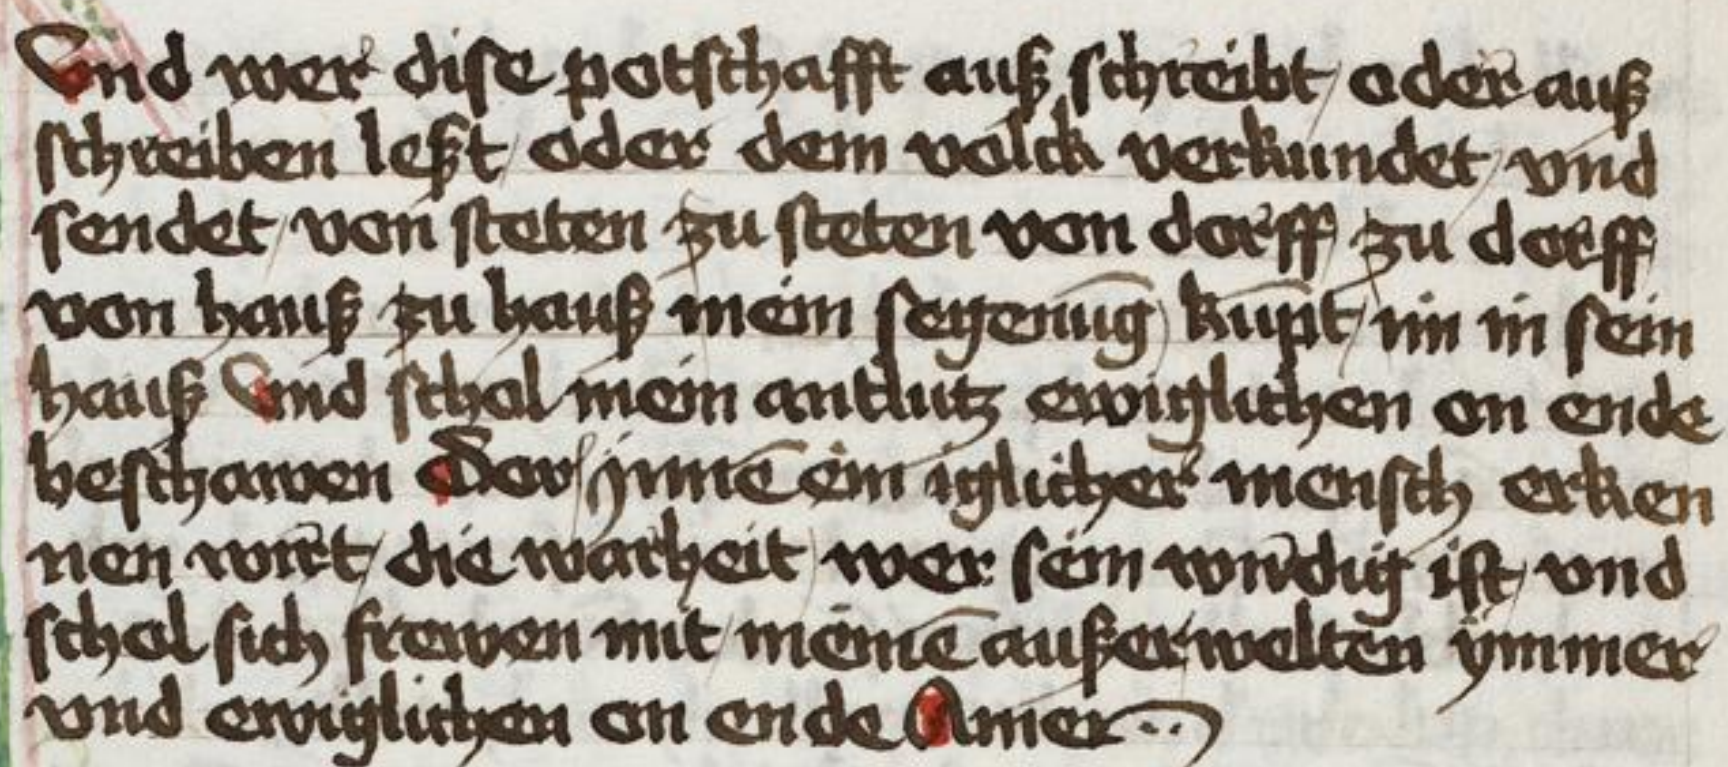 Vnd wer dise potschafft auß schreibt / oder auß
schreiben leßt / oder dem volck verkundet / vnd
sendet / von steten zu steten von dorff / zu dorff
von hauß zu hauß mein segenūg / kūpt / im in sein
hauß Vnd schol mein antlutz ewiglichen on ende
beschawen Dor / jnnē ein iglicher mensch erken
nen wirt / die warheit / wer sein wirdig ist / vnd
schol sich frewen mit / meinē außerwelten ymmer
vnd ewiglichen on ende Amen